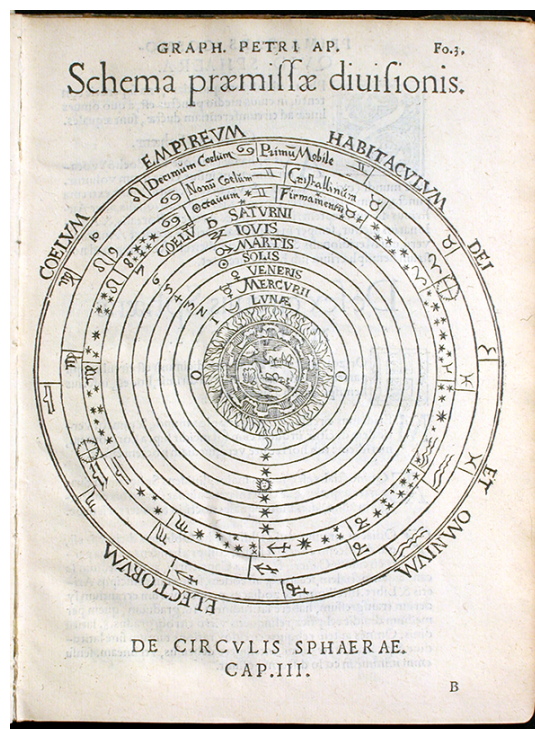 GRAPH. PETRI AP.
Fo.3.
Schema præmiſſæ diuiſionis.
COELVM EMPIREVM HABITACVLVM DEI ET OMNIVM ELECTORVM
Decimum Coelum Primũ Mobile
Nonũ Coelum Criſtallinum
Octauum Firmamentũ
COELV SATVRNI
IOVIS
MARTIS
SOLIS
VENERIS
MERCVRII
LVNÆ
DE CIRCVLIS SPHAERAE.
CAP.III.
B